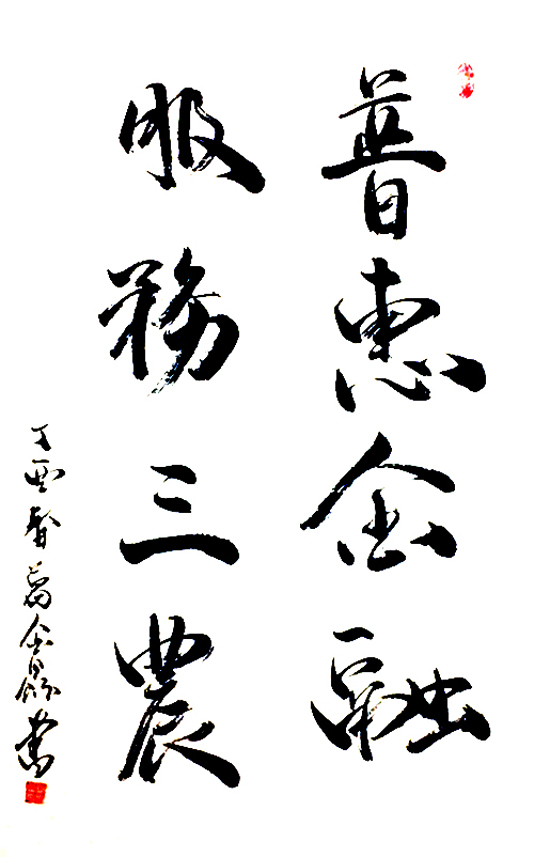 普惠金融
服務三農
丁酉春葛金錫書